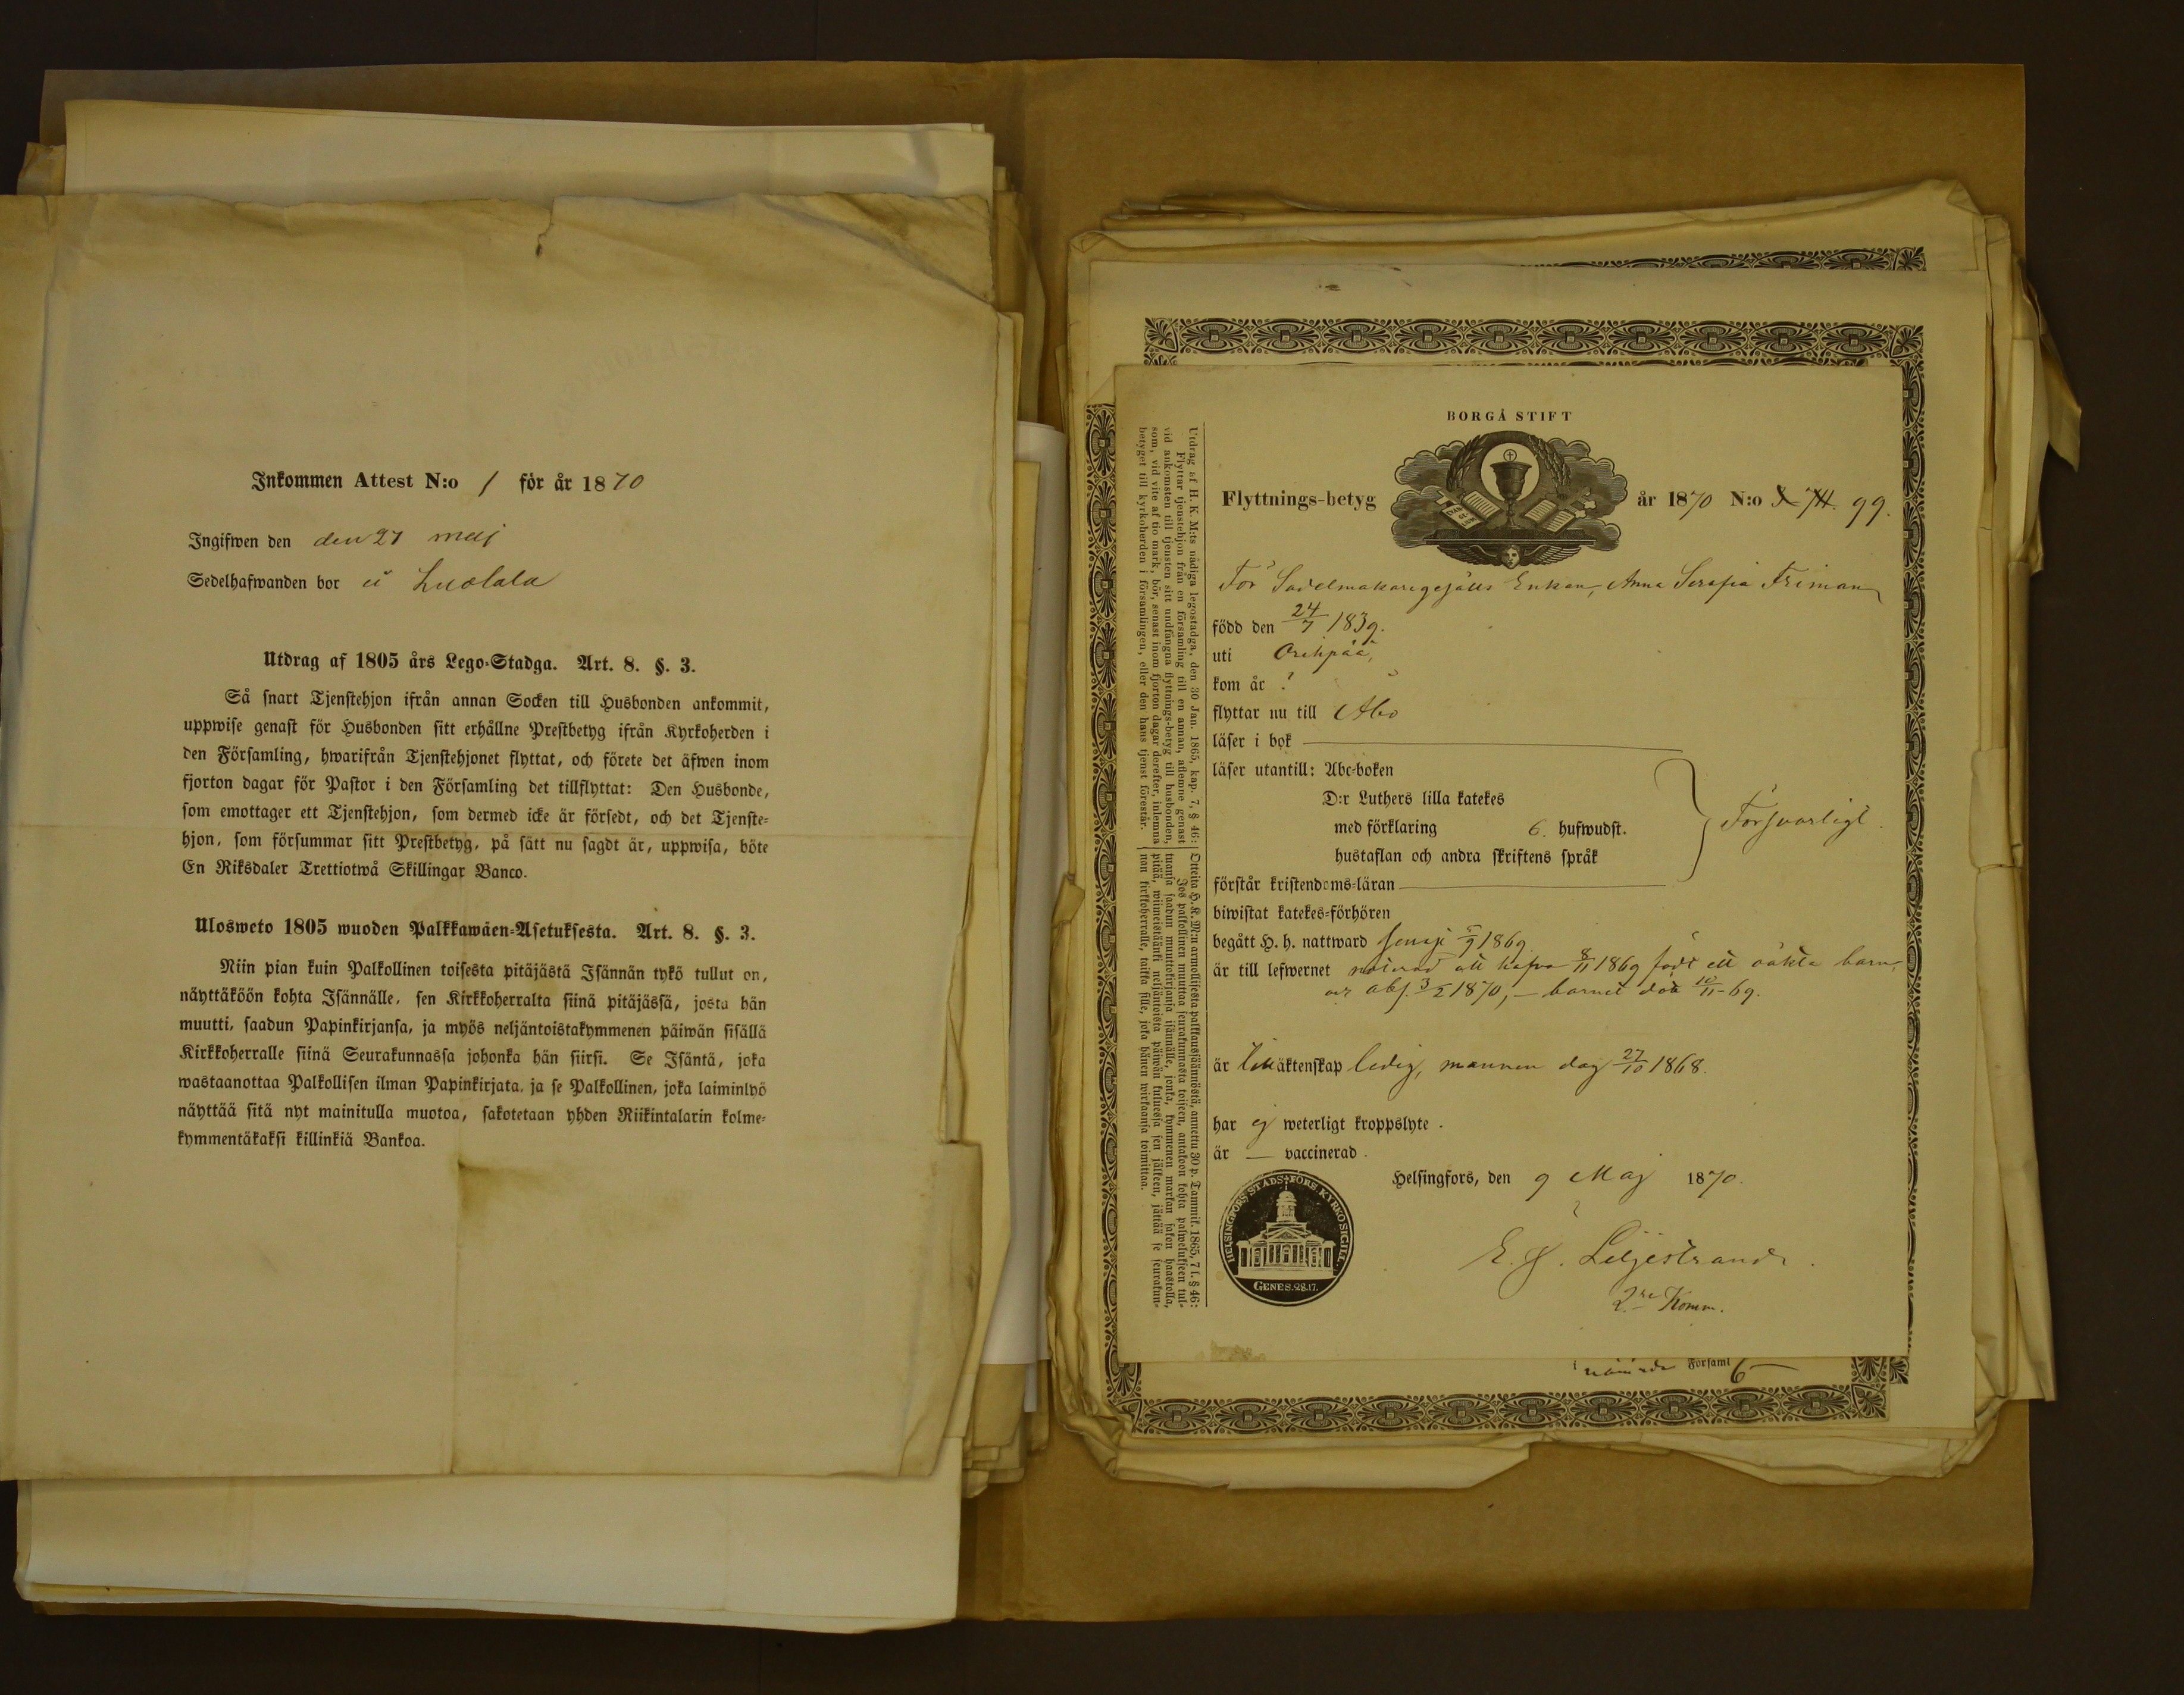 Inkommen Attest N:o 1 för år 1870
Ingifwen den den 27 maj
Sedelhafwanden bor å Luolala
Utdrag af 1805 års Lego-Stadga. Art. 8. §. 3.
Så snart Tjenstehjon ifrån annan Socken till Husbonden ankommit,
uppwise genast för Husbonden sitt erhållne Prestbetyg ifrån Kyrkoherden i
den Församling, hwarifrån Tjenstehjonet flyttat, och förete det äfwen inom
fjorton dagar för Pastor i den Församling det tillflyttat: Den Husbonde,
som emottager ett Tjenstehjon, som dermed icke är försedt, och det Tjenste-
hjon, som försummar sitt Prestbetyg, på sätt nu sagdt är, uppwisa, böte
En Riksdaler Trettiotwå Skillingar Banco.
Ulosweto 1805 wuoden Palkkawäen-Asetuksesta. Art. 8. §. 3.
Niin pian kuin Palkollinen toisesta pitäjästä Isännän tykö tullut on,
näyttäköön kohta Isännälle, sen Kirkkoherralta siinä pitäjässä, josta hän
muutti, saadun Papinkirjansa, ja myös neljäntoistakymmenen päiwän sisällä
Kirkkoherralle siinä Seurakunnassa johonka hän siirsi. Se Isäntä, joka
wastaanottaa Palkollisen ilman Papinkirjata, ja se Palkollinen, joka laiminlyö
näyttää sitä nyt mainitulla muotoa, sakotetaan yhden Riikintalarin kolme-
kymmentäkaksi killinkiä Bankoa.
BORGÅ STIFT
Flyttnings-betyg år 1870 N:o 99.
För Sadelmakaregesälls Enkan, Anna Serafia Friman
född den 24/7 1839.
uti Orihpää,
kom år ?
flyttar nu till Åbo
läser i bok
läser utantill: Abc-boken
D:r Luthers lilla katekes
med förklaring 6. hufwudst.
hustaflan och andra skriftens språk
Försvarligt.
förstår kristendoms-läran
biwistat katekes-förhören
begått H. h. nattward senast 5/9 1869
är till lefwernet noterad att hafva 8/11 1869 födt ett oäkta barn,
abs. 3/2 1870, – barnet dog 10/11-69.
är till äktenskap ledig, mannen dog 27/10 1868.
har ej weterligt kroppslyte.
är — vaccinerad.
Helsingfors, den 9 Maj 1870.
E. J. Liljestrand.
2re Komm.
HELSINGFORS STADS FÖRS. KYRKOSIGILL.
GENES. 28.17.
Utdrag af H. K. M:ts nådiga legostadga, den 30 Jan. 1865, kap. 7, § 46:
Flyttar tjenstehjon från en församling till en annan, aflemne genast
vid ankomsten till tjensten sitt undfångna flyttnings-betyg till husbonden,
som, vid vite af tio mark, bör, senast inom fjorton dagar derefter, inlemna
betyget till kyrkoherden i församlingen, eller den hans tjenst förestår.
Otteita H. K. M:n armollisesta palkkaussäännöstä, annettu 30 p. Tammik. 1865, 7 l. § 46:
Jos palkollinen muuttaa seurakunnasta toiseen, antakoon kohta palwelukseen tul-
tuansa saadun muuttokirjansa isännälle, jonka, kymmenen markan sakon haastolla,
pitää, wiimeistäänki neljäntoista päiwän kuluessa sen jälkeen, jättää se seurakun-
nan kirkkoherralle, taikka sille, joka hänen wirkaansa toimittaa.
Församl 6